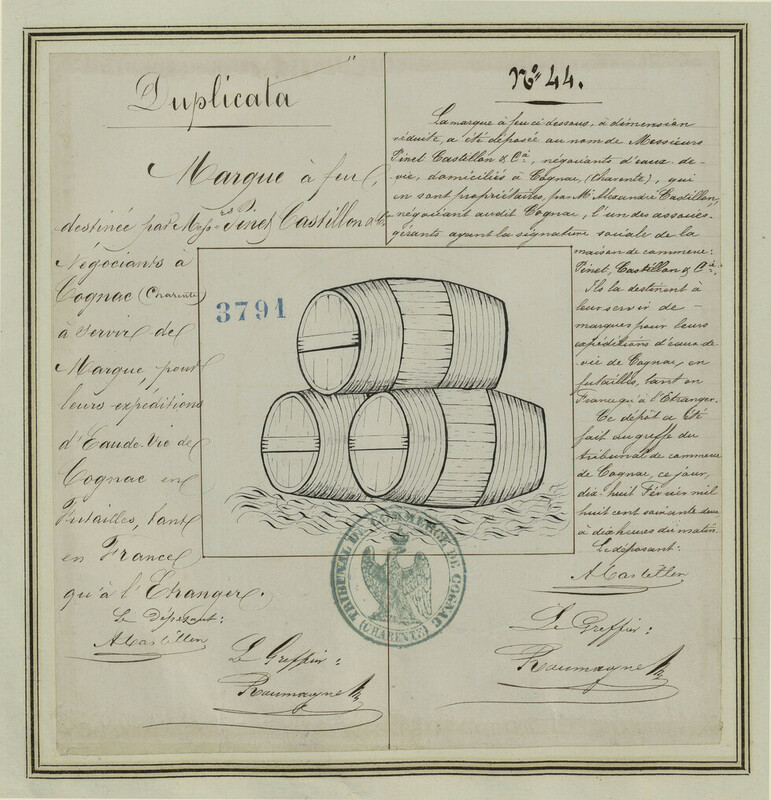 Duplicata
Marque à feu,
destinée par Mess.rs Pinet Castillon & Cie
Négociants à
Cognac (Charente)
à Servir de
Marque pour
leurs expéditions
d'Eau de Vie de
Cognac en
Futailles, tant
en France
qu'à l'Etranger.
Le Déposant:
ACastillon
Le Greffier:
Roumagne
Nº 44.
La marque à feu ci dessous, à dimension
réduite, a été déposée au nom de Messieurs
Pinet Castillon & Cie, négociants d'eaux-de-
vie, domiciliés à Cognac, (Charente), qui
en sont propriétaires, par Mr Alexandre Castillon,
négociant audit Cognac, l'un des associés-
gérants ayant la signature sociale de la
maison de commerce:
Pinet, Castillon & Cie.
Ils la destinent à
leur servir de
marques pour leurs
expéditions d'eaux-de-
vie de Cognac, en
futailles, tant en
France qu'à l'Etranger.
Ce dépôt a été
fait au greffe du
tribunal de commerce
de Cognac, ce jour,
dix-huit Février mil
huit cent soixante deux
à dix heures du matin.
Le déposant:
ACastillon
Le Greffier:
Roumagne
3791
TRIBUNAL DE COMMERCE DE COGNAC
(CHARENTE)